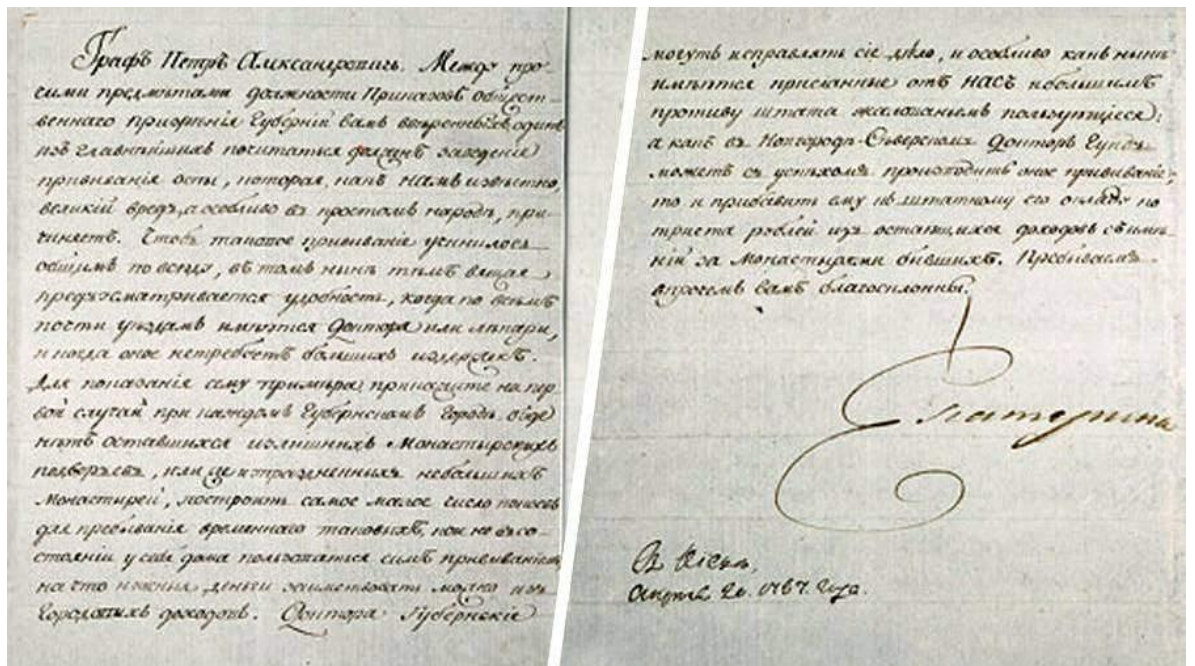 Графъ Петръ Александровичь. Между про-
чими предмѣтами должности Приказовъ общест-
веннаго призрѣнія Губерній вамъ ввѣренныхъ, одинъ
изъ главнѣйшихъ почитаться долженъ заведеніе
прививанія оспы, которая, какъ намъ извѣстно,
великій вредъ, а особливо въ простомъ народѣ, при-
чиняетъ. Чтобъ таковое прививаніе учинилось
общимъ повсюду, въ томъ нынѣ тѣмъ вящая
предъусматривается удобность, когда по всѣмъ
почти уѣздамъ имѣются Доктора или лѣкари,
и когда оное нетребуетъ большихъ издержекъ.
Для показанія сему примѣра прикажите на пер-
вой случай при каждомъ Губернскомъ Городѣ, объ
оставшихся излишнихъ Монастырскихъ
подворьевъ, или же изпраздненныхъ небольшихъ
Монастырей, построить самое малое число покоевъ
для пребыванія временнаго таковыхъ, кои не въ со-
стояніи у себя дома пользоваться симъ прививаніемъ,
на что нужныя деньги заимствовать можно изъ
Городскихъ доходовъ. Доктора Губернскіе
могутъ исправлять сіе дѣло, и особливо какъ нынѣ
имѣются присланные отъ НАСЪ небольшимъ
противу штата жалованьемъ пользующіеся;
а какъ въ Новгородѣ-Сѣверскомъ Докторъ Гунъ
можетъ съ успѣхомъ производить оное прививаніе,
то и прибавить ему къ штатному его окладу по
триста рублей изъ остающихся доходовъ съ имѣ-
ній за Монастырями бывшихъ. Пребываемъ
впрочемъ вамъ благосклонны.
Екатерина
Въ Кіевѣ,
Апрѣля 20. 1787. года.